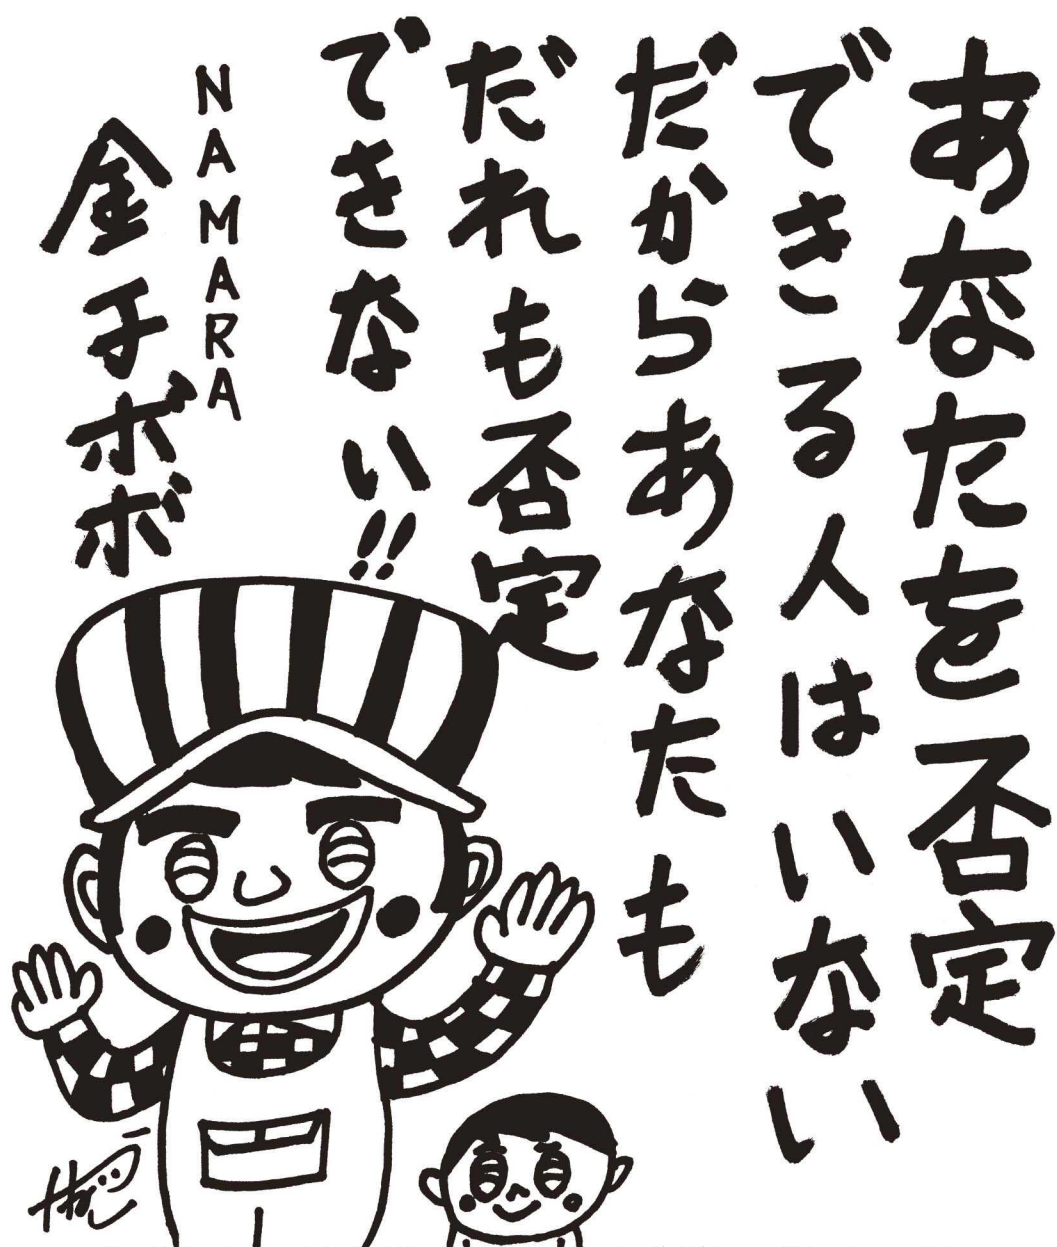 あなたを否定
できる人はいない
だからあなたも
だれも否定
できない!!
NAMARA
金子ボボ